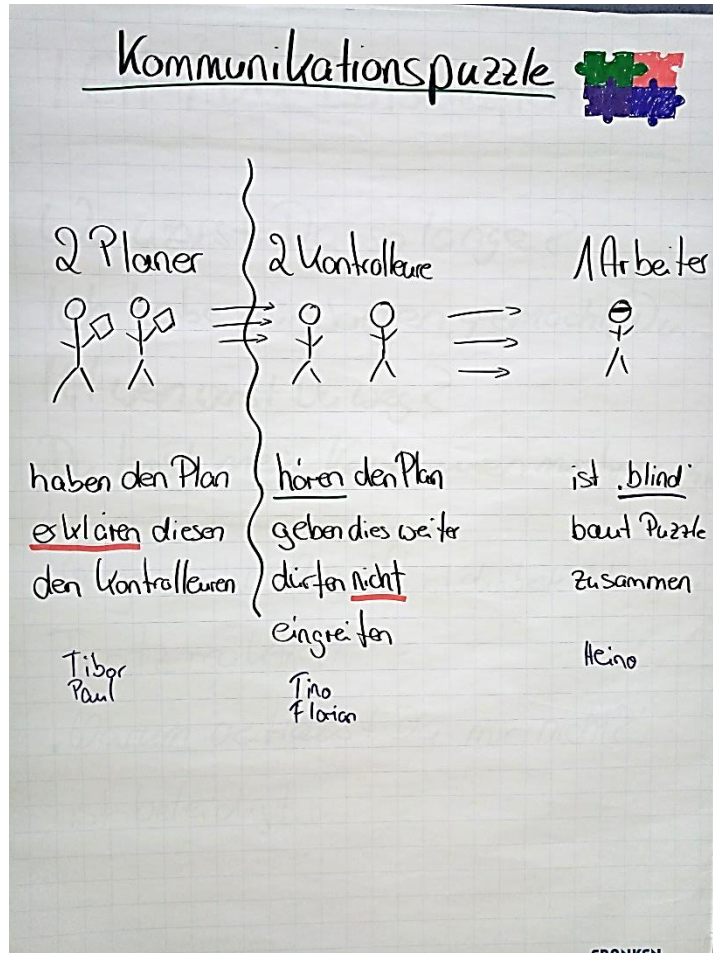 Kommunikationspuzzle
2 Planer
haben den Plan
erklären diesen
den Kontrolleuren
Tibor
Paul
2 Kontrolleure
hören den Plan
geben dies weiter
dürfen nicht
eingreifen
Tino
Florian
1 Arbeiter
ist "blind"
baut Puzzle
zusammen
Heino